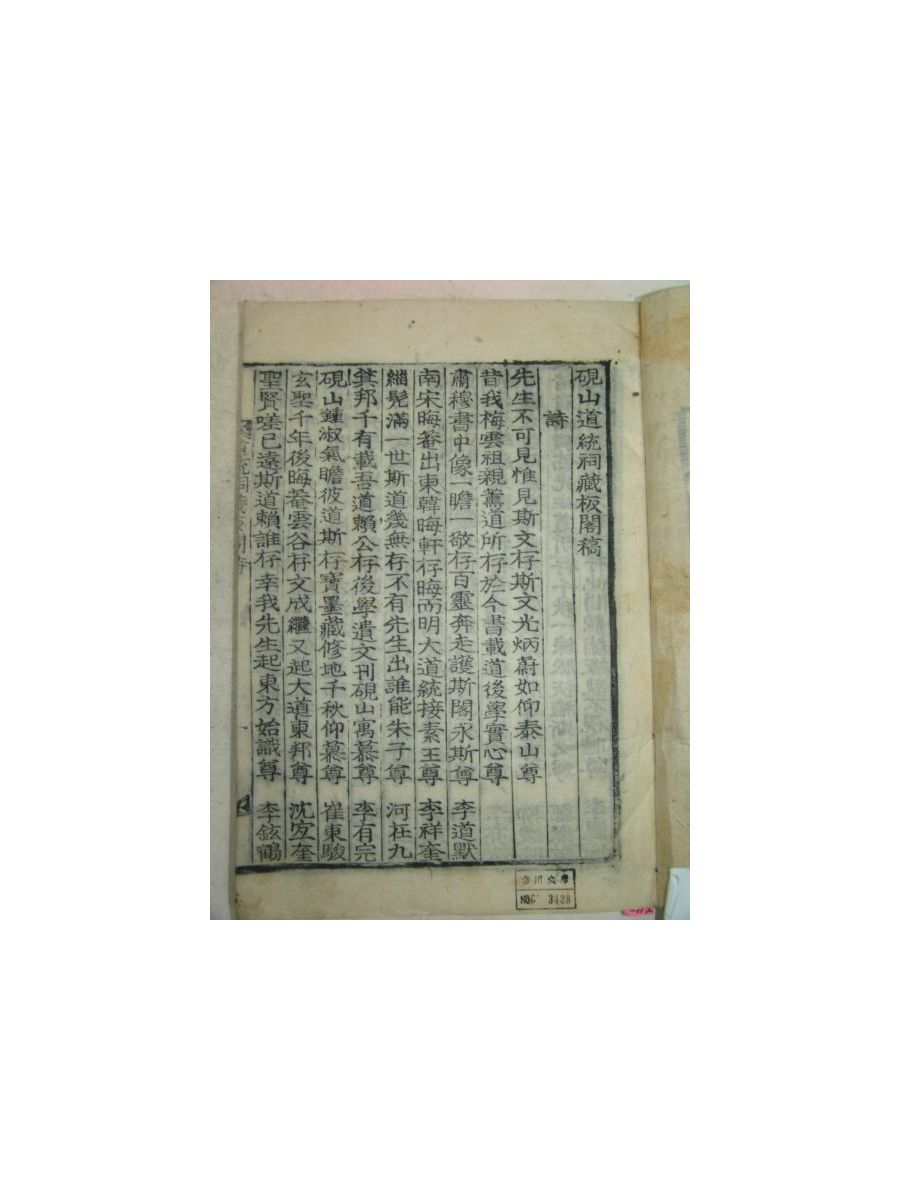 硯山道統祠藏板閣稿
詩
先生不可見惟見斯文存斯文光炳蔚如仰泰山尊
昔我梅雲祖親薰道所存於今書載道後學實心尊
肅穆書中像一瞻一敬存百靈奔走護斯閣永斯尊 李道默
南宋晦菴出東韓晦軒存晦而明大道統接素王尊 李祥奎
緇髡滿一世斯道幾無存不有先生出誰能朱子尊 河在九
箕邦千有載吾道賴公存後學遺文刊硯山寓慕尊 李有完
硯山鍾淑氣瞻彼道斯存寶墨藏修地千秋仰慕尊 崔東駿
玄聖千年後晦菴雲谷存文成繼又起大道東邦尊 沈宜奎
聖賢嗟已遠斯道賴誰存幸我先生起東方始識尊 李鉉鶴
川文庫
3428